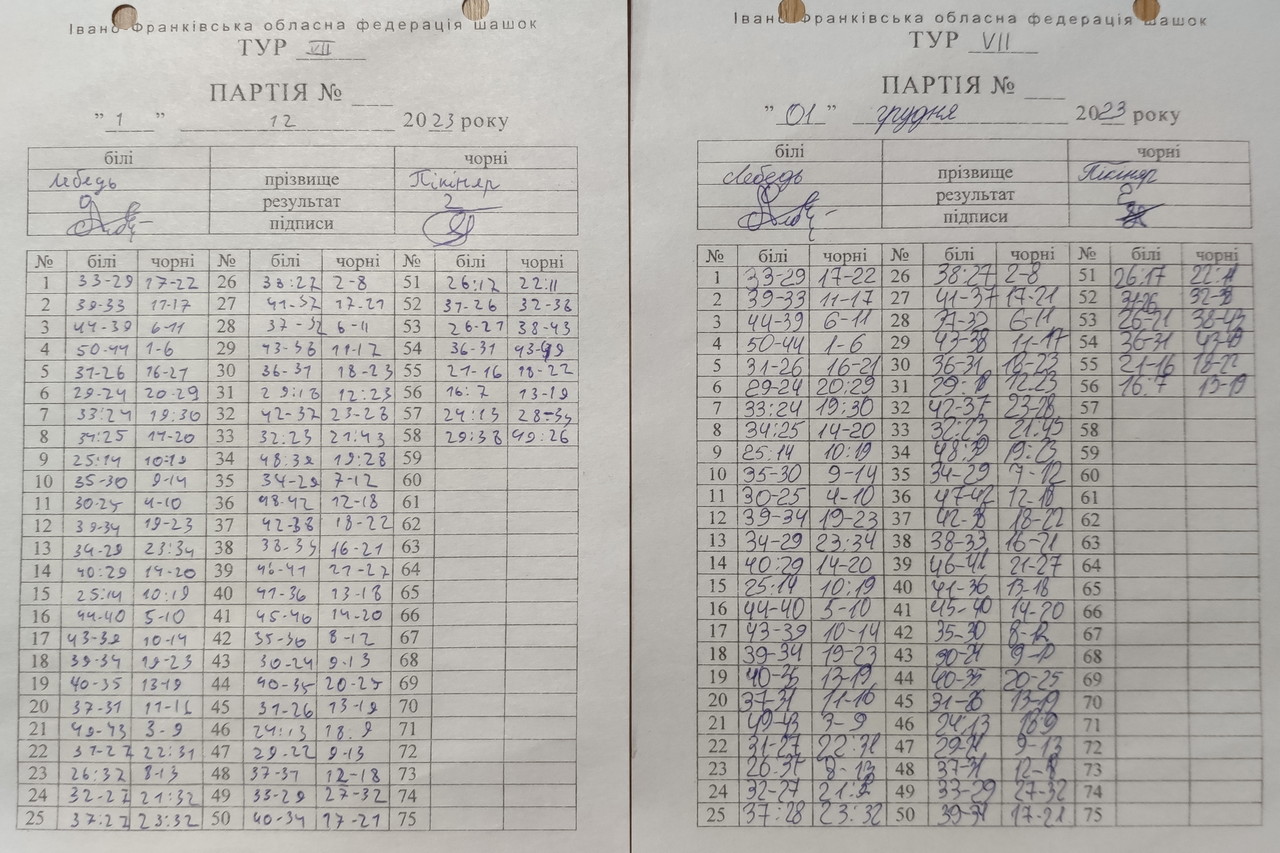 Івано Франківська обласна федерація шашок
ТУР VII
ПАРТІЯ № ___
"1" 12 2023 року
білі чорні
Лебедь прізвище Пікіняр
0 результат 2
підписи
№ білі чорні № білі чорні № білі чорні
1 33-29 17-22 26 38:27 2-8 51 26:17 22:11
2 39-33 11-17 27 41-37 17-21 52 31-26 32-38
3 44-39 6-11 28 37-32 6-11 53 26-21 38-43
4 50-44 1-6 29 43-38 11-17 54 36-31 43-49
5 31-26 16-21 30 36-31 18-23 55 21-16 18-22
6 29-24 20-29 31 29:18 12:23 56 16:7 13-19
7 33:24 19:30 32 42-37 23-28 57 24:13 28-39
8 34:25 14-20 33 32:23 21:43 58 29:38 49:26
9 25:14 10:19 34 48:39 19:28 59
10 35-30 9-14 35 34-29 7-12 60
11 30-25 4-10 36 48-42 12-18 61
12 39-34 19-23 37 42-38 18-22 62
13 34-29 23:34 38 38-33 16-21 63
14 40:29 14-20 39 46-41 21-27 64
15 25:14 10:19 40 41-36 13-18 65
16 44-40 5-10 41 45-40 14-20 66
17 43-39 10-14 42 35-30 8-12 67
18 39-34 19-23 43 30-24 9-13 68
19 40-35 13-19 44 40-35 20-25 69
20 37-31 11-16 45 31-26 13-19 70
21 49-43 3-9 46 24:13 18:9 71
22 31-27 22:31 47 29-22 9-13 72
23 26:37 8-13 48 37-31 12-18 73
24 32-27 21:32 49 33-29 27-32 74
25 37:27 23:32 50 40-34 17-21 75
Івано Франківська обласна федерація шашок
ТУР VII
ПАРТІЯ № ___
"01" грудня 2023 року
білі чорні
Лебедь прізвище Пікіняр
результат 2
підписи
№ білі чорні № білі чорні № білі чорні
1 33-29 17-22 26 38:27 2-8 51 26:17 22:11
2 39-33 11-17 27 41-37 17-21 52 31-26 32-38
3 44-39 6-11 28 37-32 6-11 53 26-21 38-43
4 50-44 1-6 29 43-38 11-17 54 36-31 43-49
5 31-26 16-21 30 36-31 18-23 55 21-16 18-22
6 29-24 20:29 31 29:18 12:23 56 16:7 13-19
7 33:24 19:30 32 42-37 23-28 57
8 34:25 14-20 33 32:23 21:43 58
9 25:14 10:19 34 48:39 19:23 59
10 35-30 9-14 35 34-29 7-12 60
11 30-25 4-10 36 47-42 12-18 61
12 39-34 19-23 37 42-38 18-22 62
13 34-29 23:34 38 38-33 16-21 63
14 40:29 14-20 39 46-41 21-27 64
15 25:14 10:19 40 41-36 13-18 65
16 44-40 5-10 41 45-40 14-20 66
17 43-39 10-14 42 35-30 8-12 67
18 39-34 19-23 43 30-24 9-13 68
19 40-35 13-19 44 40-35 20-25 69
20 37-31 11-16 45 31-26 13-19 70
21 49-43 3-9 46 24:13 18:9 71
22 31-27 22:31 47 29-24 9-13 72
23 26:37 8-13 48 37-31 12-18 73
24 32-27 21:32 49 33-29 27-32 74
25 37:28 23:32 50 39-34 17-21 75